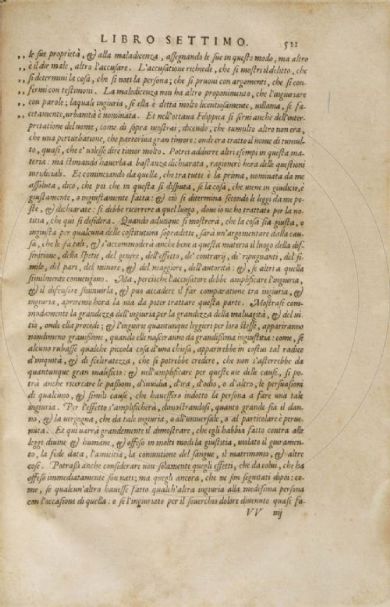 LIBRO SETTIMO. 521
le sue proprietà, & alla maladicenza, assegnando le sue in questo modo, ma altro
è il dir male, altro l'accusare. L'accusatione richiede, che si mostri il delitto, che
si determini la cosa, che si noti la persona; che si pruovi con argomenti, che si con-
fermi con testimoni. La maladicenza non ha altro proponimento, che l'ingiuriare
con parole; laquale ingiuria, si ella è detta molto licentiosamente, villania, si fa-
cetamente, urbanità è nominata. Et nell'ottava Filippica si fermò anche dell'inter-
pretatione del nome, come di sopra mostrai, dicendo, che tumulto altro non era,
che una perturbatione, che partoriva gran timore: onde era tratto il nome di tumul-
to, quasi, che e' volesse dire timor molto. Potrei addurre altri essempi in questa ma-
teria: ma stimando haverla a bastanza dichiarata, ragionerò hora delle questioni
Et cominciando da quella, che tra tutte è la prima, nominata da me
assoluta, dico, che poi che in questa si disputa, se la cosa, che viene in giudicio, è
giustamente, o ingiustamente fatta: & ciò si determina secondo le leggi da me po-
ste, & dichiarate: si debbe ricorrere a quel luogo, dove io ne ho trattato per la no-
titia, che qui si desidera. Quando adunque si mostrerà, che la cosa sia giusta, o
ingiusta per qualcuna delle costitutioni sopradette, sarà un'argomentare dalla cau-
sa, che le fa tali, & s'accommoderà anche bene a questa materia il luogo della dif-
finitione, della spetie, del genere, dell'effetto, de' contrarij, de' ripugnanti, del si-
mile, del pari, del minore, & del maggiore, dell'autorità: &, se altri a quella
similmente convengono. Ma, perciò che l'accusatore debbe amplificare l'ingiuria,
& il difensore sminuirla, & può accadere il far comparatione tra ingiuria, &
ingiuria, apriremo hora la via da poter trattare questa parte. Mostrasi com-
modamente la grandezza dell'ingiuria per la grandezza della malvagità, & del vi-
tio, onde ella procede; & l'ingiurie quantunque leggieri per loro stesse, appariranno
nondimeno gravissime, quando elle nasceranno da grandissima ingiustitia: come, se
alcuno rubasse qualche piccola cosa d'una chiesa, apparirebbe in costui tal radice
d'iniquità, & di sceleratezza, che si potrebbe credere, che non s'asterrebbe da
quantunque gran maleficio: & nell'amplificare per queste vie delle cause, si po-
trà anche ricercare le passioni, d'invidia, d'ira, d'odio, o d'altro, le persuasioni
di qualcuno, & simili cause, che havessero indotto la persona a fare una tale
ingiuria. Per l'effetto s'amplificherà, dimostrandosi, quanto grande sia il dan-
no, & la vergogna, che da tale ingiuria, o all'universale, o al particolare è perve-
nuta. Et qui varrà grandemente il dimostrare, che egli habbia fatto contra alle
leggi divine & humane, & offeso in molti modi la giustitia, violato il giuramen-
to, la fede data, l'amicitia, la congiuntione del sangue, il matrimonio, & altre
cose. Potrassi anche considerare non solamente quegli effetti, che da colui, che ha
offeso immediatamente sien nati; ma quegli ancora, che ne sien seguitati dipoi: co-
me, se qualcun'altro havesse fatto qualch'altra ingiuria alla medesima persona
con l'occasione di quella: o se l'ingiuriato per il soverchio dolore divenuto quasi fu-
VV iij